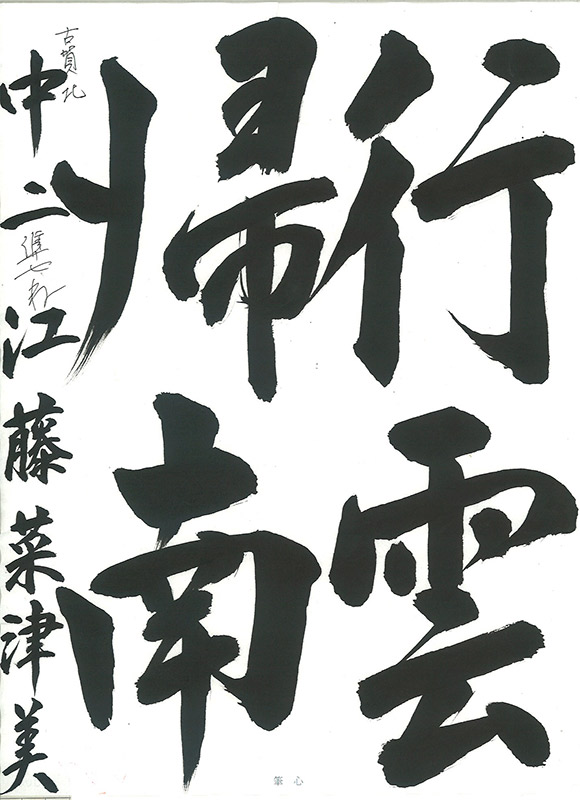 行雲
帰南
中二 江藤菜津美
古賀北
心筆